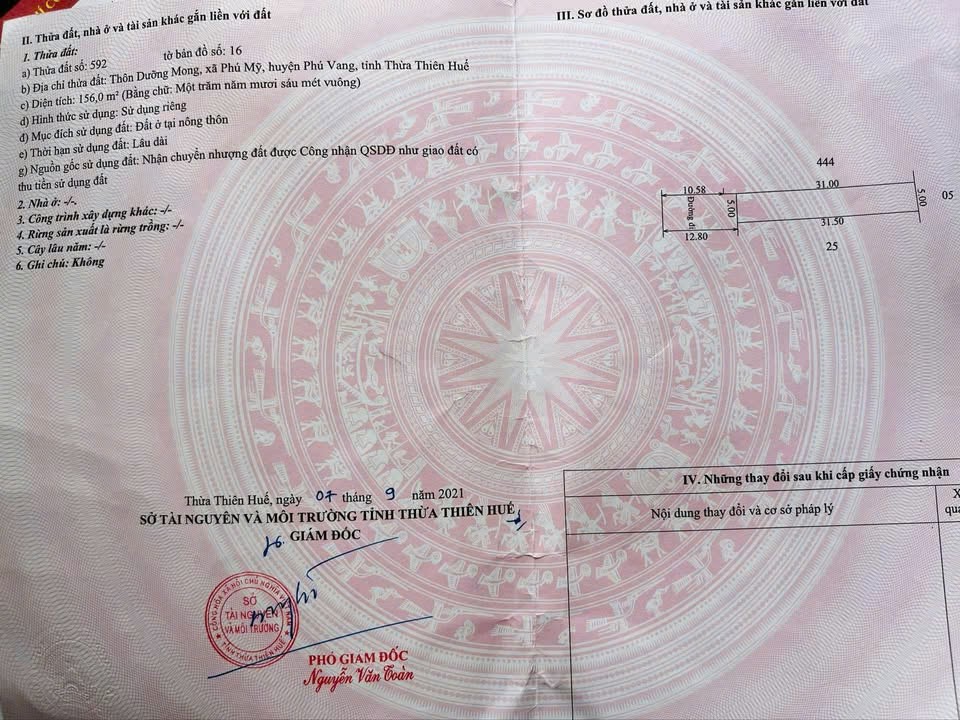 II. Thửa đất, nhà ở và tài sản khác gắn liền với đất
1. Thửa đất:
a) Thửa đất số: 592 tờ bản đồ số: 16
b) Địa chỉ thửa đất: Thôn Dưỡng Mong, xã Phú Mỹ, huyện Phú Vang, tỉnh Thừa Thiên Huế
c) Diện tích: 156,0 m² (Bằng chữ: Một trăm năm mươi sáu mét vuông)
d) Hình thức sử dụng: Sử dụng riêng
đ) Mục đích sử dụng đất: Đất ở tại nông thôn
e) Thời hạn sử dụng đất: Lâu dài
g) Nguồn gốc sử dụng đất: Nhận chuyển nhượng đất được Công nhận QSDĐ như giao đất có
thu tiền sử dụng đất
2. Nhà ở: -/-
3. Công trình xây dựng khác: -/-
4. Rừng sản xuất là rừng trồng: -/-
5. Cây lâu năm: -/-
6. Ghi chú: Không
Thừa Thiên Huế, ngày 07 tháng 9 năm 2021
SỞ TÀI NGUYÊN VÀ MÔI TRƯỜNG TỈNH THỪA THIÊN HUẾ
GIÁM ĐỐC
CỘNG HÒA XÃ HỘI CHỦ NGHĨA VIỆT NAM
SỞ
TÀI NGUYÊN
VÀ MÔI TRƯỜNG
TỈNH THỪA THIÊN HUẾ
PHÓ GIÁM ĐỐC
Nguyễn Văn Toàn
III. Sơ đồ thửa đất, nhà ở và tài sản khác gắn liền với đất
444
10.58
31.00
Đường đi
5.00
5.00
05
12.80
31.50
25
IV. Những thay đổi sau khi cấp giấy chứng nhận
Nội dung thay đổi và cơ sở pháp lý